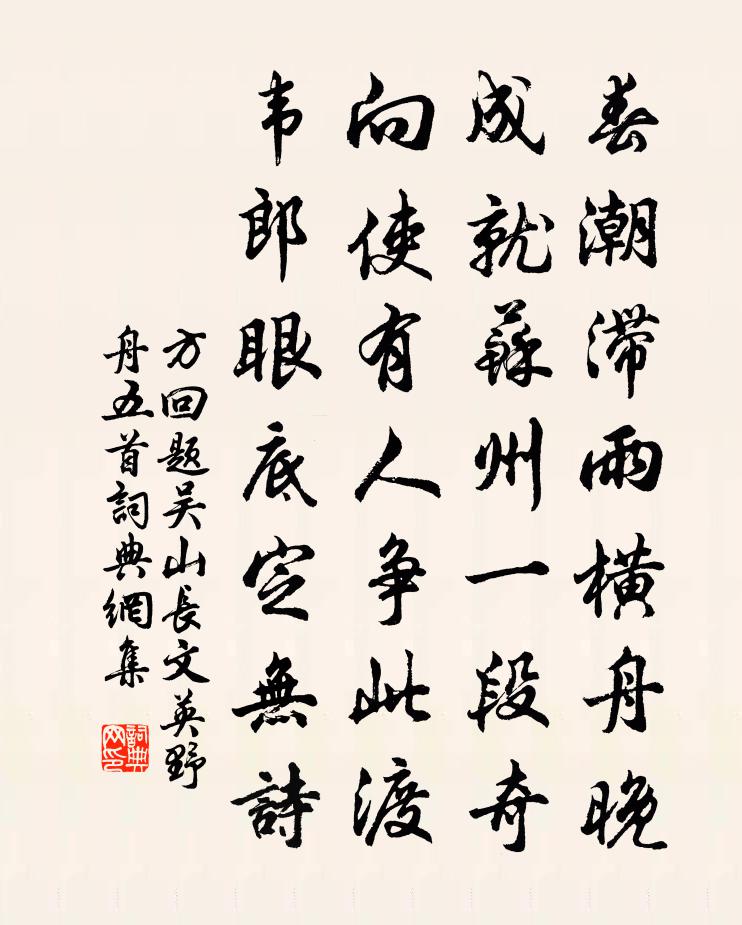 春潮滞雨橫舟晚
成就蘇州一段奇
向使有人争此渡
韦郎眼底定無詩
方回题吴山長文英野
舟五首詞典網集
詞典
网印